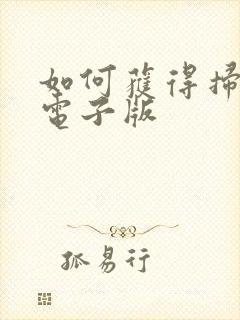 如何獲得掃
電子版
孤易行